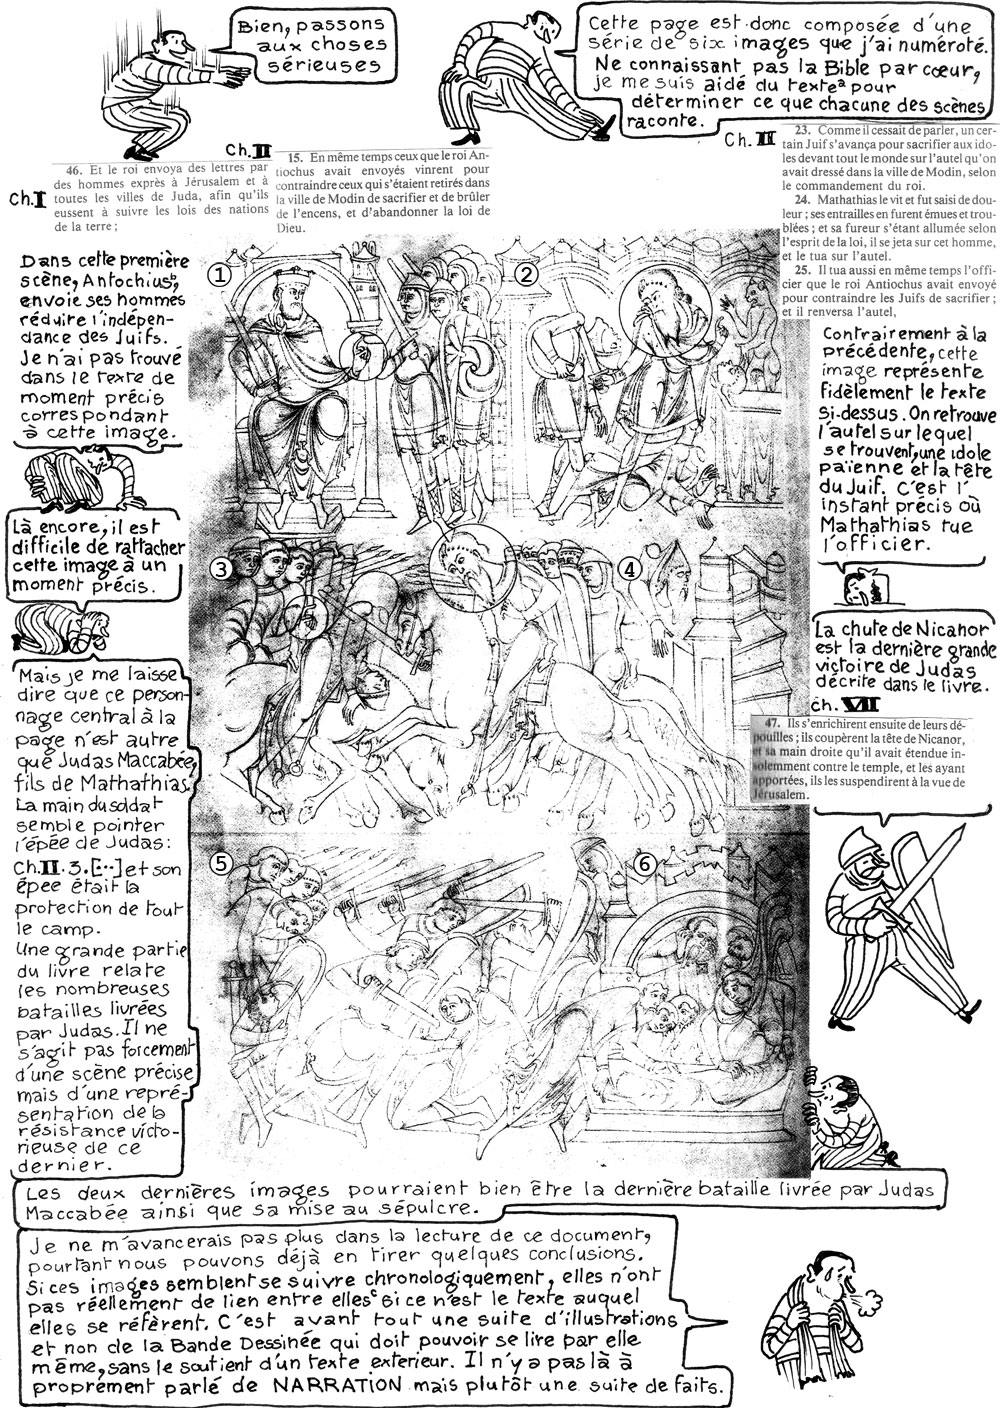 Bien, passons
aux choses
sérieuses
Cette page est donc composée d'une
série de six images que j'ai numéroté.
Ne connaissant pas la Bible par cœur,
je me suis aidé du texteᵃ pour
déterminer ce que chacune des scènes
raconte.
Ch. I
46. Et le roi envoya des lettres par
des hommes exprès à Jérusalem et à
toutes les villes de Juda, afin qu'ils
eussent à suivre les lois des nations
de la terre ;
Ch. II
15. En même temps ceux que le roi An-
tiochus avait envoyés vinrent pour
contraindre ceux qui s'étaient retirés dans
la ville de Modin de sacrifier et de brûler
de l'encens, et d'abandonner la loi de
Dieu.
Ch. II
23. Comme il cessait de parler, un cer-
tain Juif s'avança pour sacrifier aux ido-
les devant tout le monde sur l'autel qu'on
avait dressé dans la ville de Modin, selon
le commandement du roi.
24. Mathathias le vit et fut saisi de dou-
leur ; ses entrailles en furent émues et trou-
blées ; et sa fureur s'étant allumée selon
l'esprit de la loi, il se jeta sur cet homme,
et le tua sur l'autel.
25. Il tua aussi en même temps l'offi-
cier que le roi Antiochus avait envoyé
pour contraindre les Juifs de sacrifier ;
et il renversa l'autel,
Dans cette première
scène, Antochiusᵇ,
envoie ses hommes
réduire l'indépen-
dance des Juifs.
Je n'ai pas trouvé
dans le texte de
moment précis
correspondant
à cette image.
1
2
Contrairement à la
précédente, cette
image représente
fidèlement le texte
si-dessus. On retrouve
l'autel sur lequel
se trouvent, une idole
païenne et la tête
du Juif. C'est l'
instant précis où
Mathathias tue
l'officier.
Là encore, il est
difficile de rattacher
cette image à un
moment précis.
3
4
La chute de Nicanor
est la dernière grande
victoire de Judas
décrite dans le livre.
Ch. VII
47. Ils s'enrichirent ensuite de leurs dé-
pouilles ; ils coupèrent la tête de Nicanor,
et sa main droite qu'il avait étendue in-
solemment contre le temple, et les ayant
apportées, ils les suspendirent à la vue de
Jérusalem.
Mais je me laisse
dire que ce person-
nage central à la
page n'est autre
que Judas Maccabée,
fils de Mathathias.
La main du soldat
semble pointer
l'épée de Judas:
Ch. II. 3. [...] et son
épee était la
protection de tout
le camp.
Une grande partie
du livre relate
les nombreuses
batailles livrées
par Judas. Il ne
s'agit pas forcement
d'une scène précise
mais d'une repré-
sentation de la
résistance victo-
rieuse de ce
dernier.
5
6
Les deux dernières images pourraient bien être la dernière bataille livrée par Judas
Maccabée ainsi que sa mise au sépulcre.
Je ne m'avancerais pas plus dans la lecture de ce document,
pourtant nous pouvons déjà en tirer quelques conclusions.
Si ces images semblent se suivre chronologiquement, elles n'ont
pas réellement de lien entre ellesᶜ si ce n'est le texte auquel
elles se réfèrent. C'est avant tout une suite d'illustrations
et non de la Bande Dessinée qui doit pouvoir se lire par elle
même, sans le soutient d'un texte exterieur. Il n'y a pas là à
proprement parlé de NARRATION mais plutôt une suite de faits.